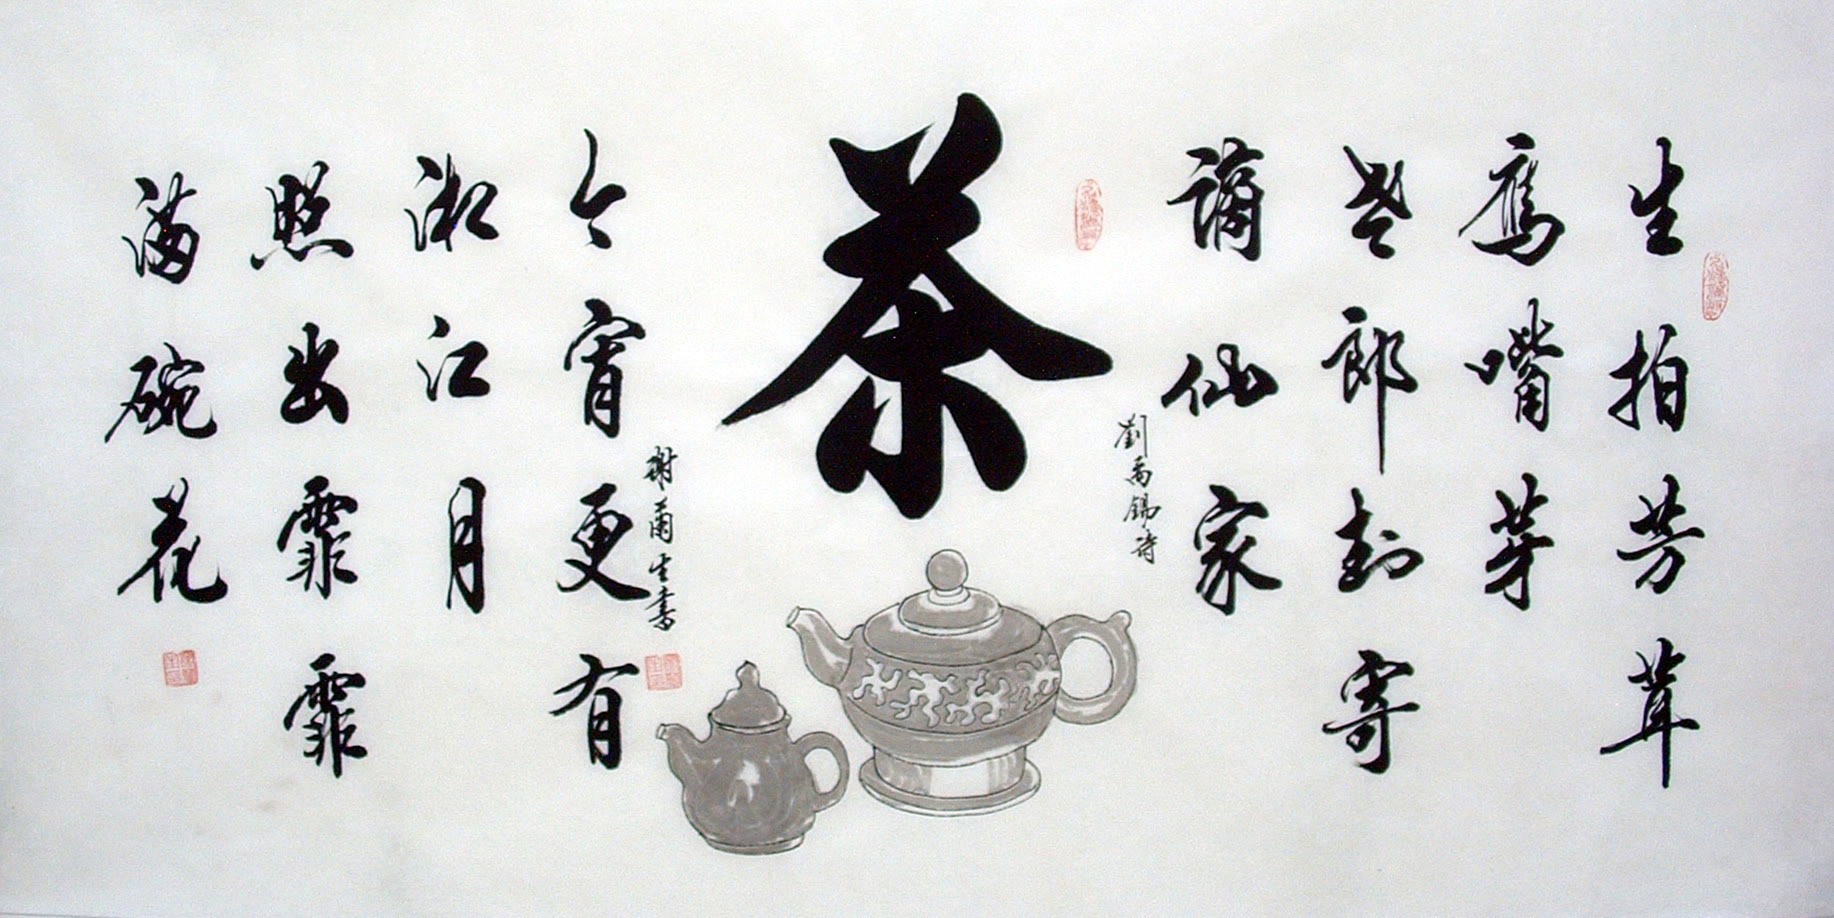 生拍芳茸
鷹嘴芽
老郎封寄
謫仙家
劉禹錫詩
茶
謝生書
今宵更有
湘江月
照出霏霏
滿碗花